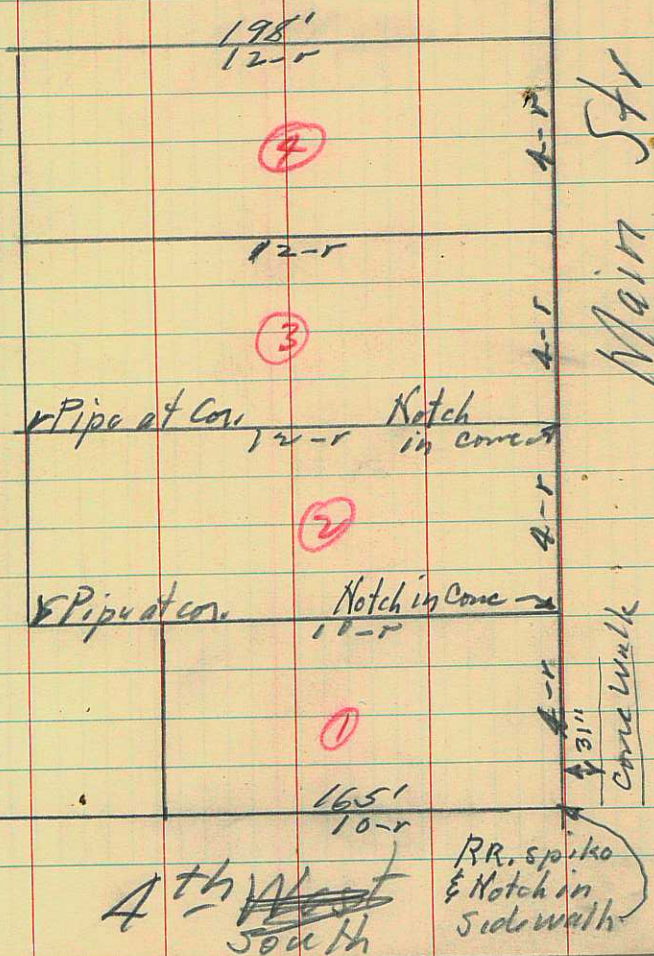 198'
12-r
4
4-r
Main Str
12-r
3
4-r
Pipe at Cor.
Notch
12-r
in conc.
2
4-r
Pipe at cor.
Notch in Conc
10-r
1
4-r
31"
Conc Walk
165'
10-r
4th West
South
RR. spike
& Notch in
Sidewalk